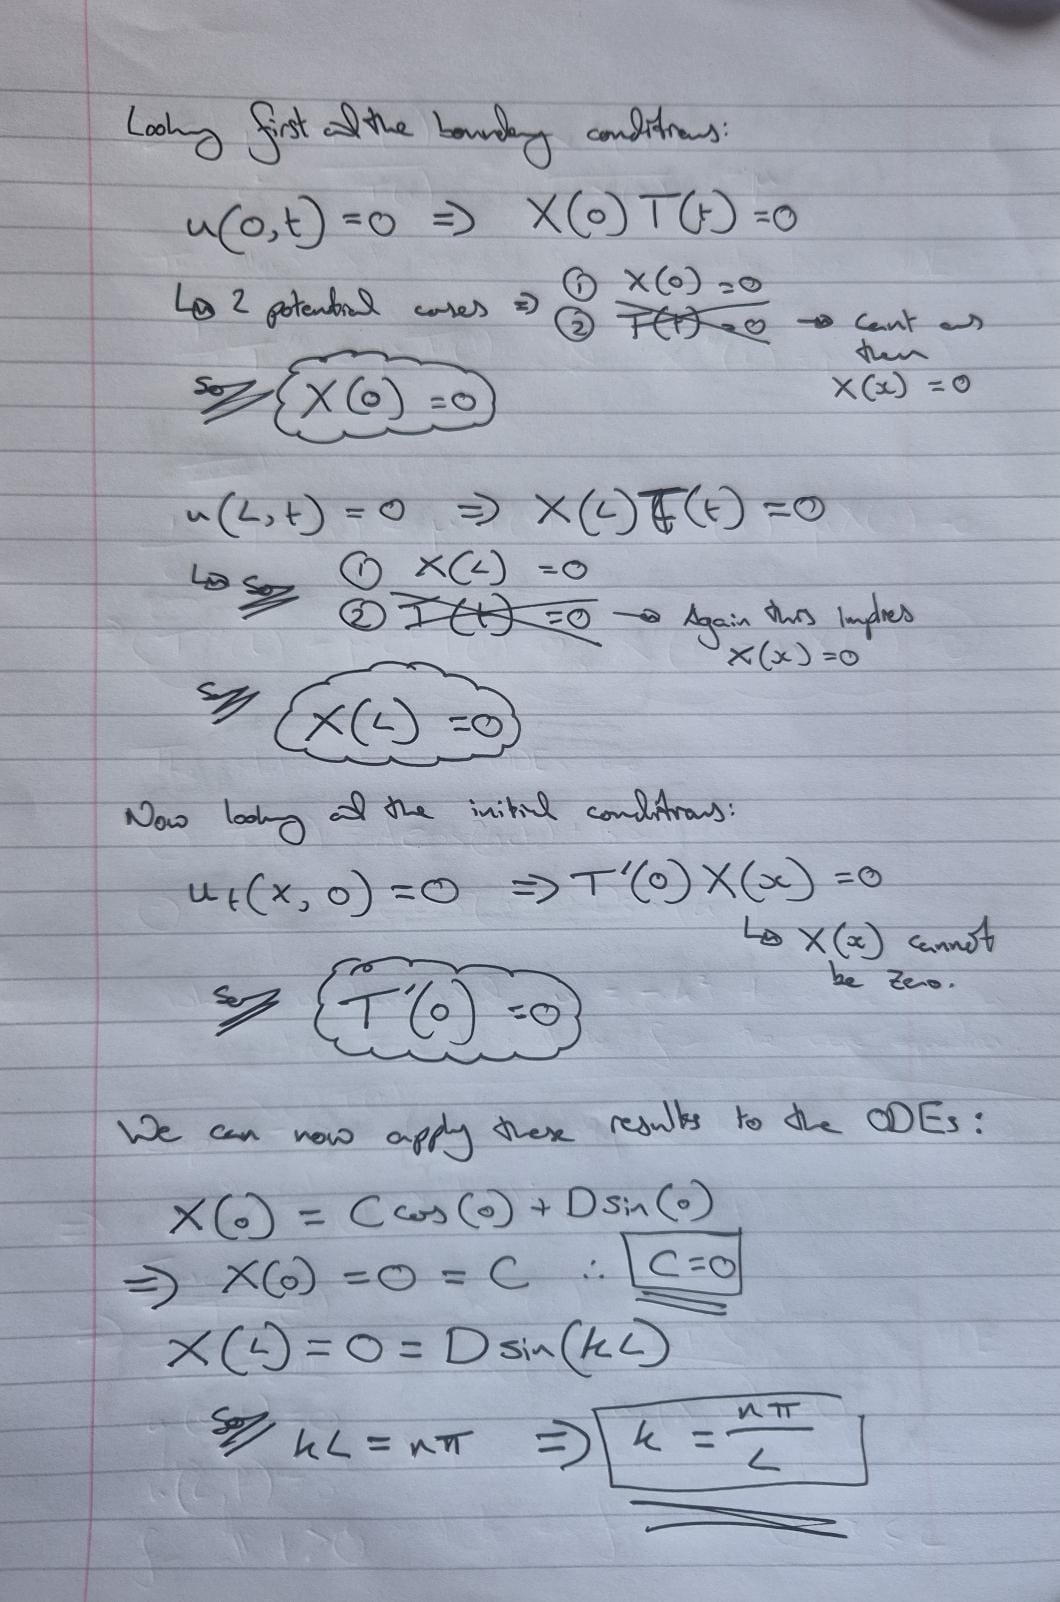 Looking first at the boundary conditions:
u(0,t) = 0 ⇒ X(0)T(t) = 0
↳ 2 potential cases ⇒ ① X(0) = 0
② T(t) = 0 → can't as then
X(x) = 0
So X(0) = 0
u(L,t) = 0 ⇒ X(L)T(t) = 0
↳ So ① X(L) = 0
② T(t) = 0 → Again this implies
X(x) = 0
So X(L) = 0
Now looking at the initial conditions:
u_t(x, 0) = 0 ⇒ T'(0) X(x) = 0
↳ X(x) cannot
be zero.
So T'(0) = 0
We can now apply these results to the ODEs:
X(0) = C cos(0) + D sin(0)
⇒ X(0) = 0 = C ∴ C = 0
X(L) = 0 = D sin(kL)
So kL = nπ ⇒ k = nπ/L